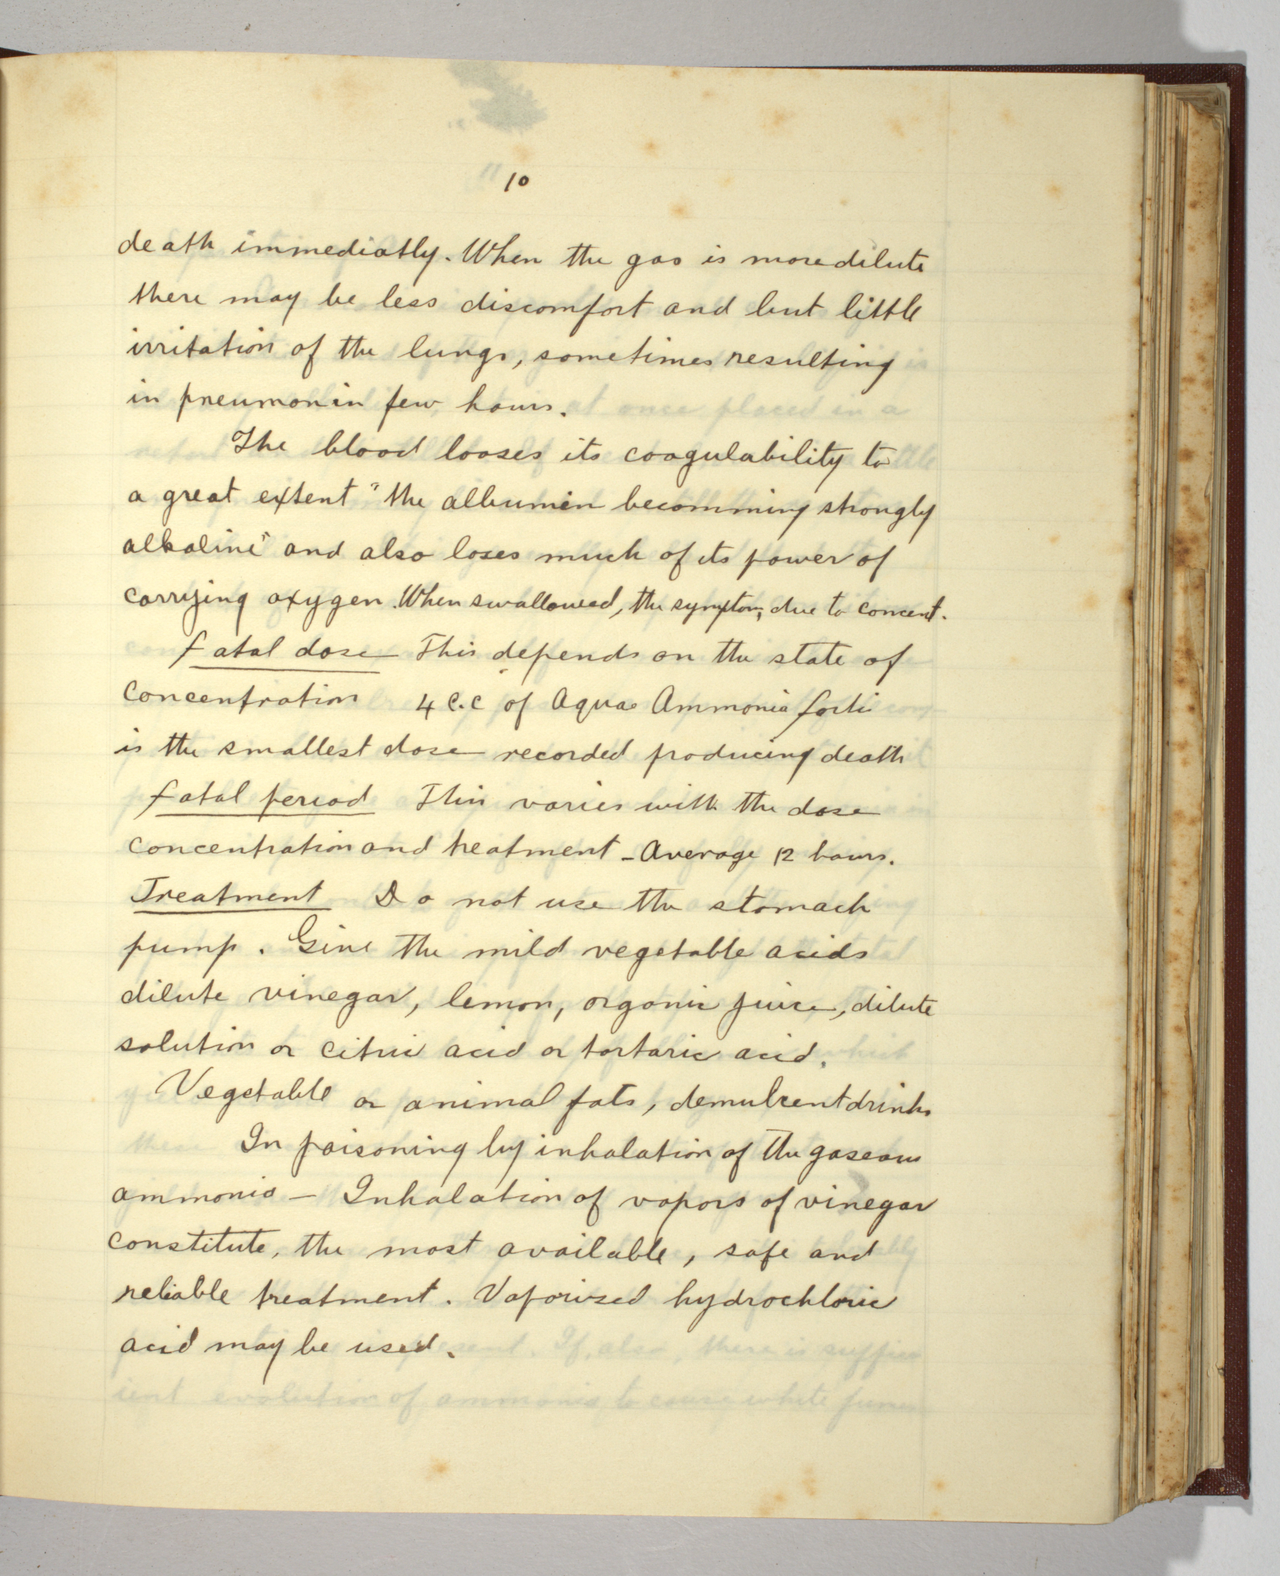 10
death immediatly. When the gas is more dilute
there may be less discomfort and but little
irritation of the lungs, sometimes resulting
in pneumon in few hours.
The blood looses its coagulability to
a great extent "the albumin becomming strongly
alkaline" and also loses much of its power of
carrying oxygen. When swallowed, the symptoms due to concent.
Fatal dose This depends on the state of
concentration 4 c.c of Aqua Ammonia forti
is the smallest dose recorded producing death
Fatal period This varies with the dose
concentration and treatment - Average 12 hours.
Treatment Do not use the stomach
pump. Give the mild vegetable acids
dilute vinegar, lemon, organic juice, dilute
solution or citric acid or tartaric acid.
Vegetable or animal fats, demulcent drinks
In poisoning by inhalation of the gaseous
ammonia — Inhalation of vapors of vinegar
constitute, the most available, safe and
reliable treatment. Vaporized hydrochloric
acid may be used.